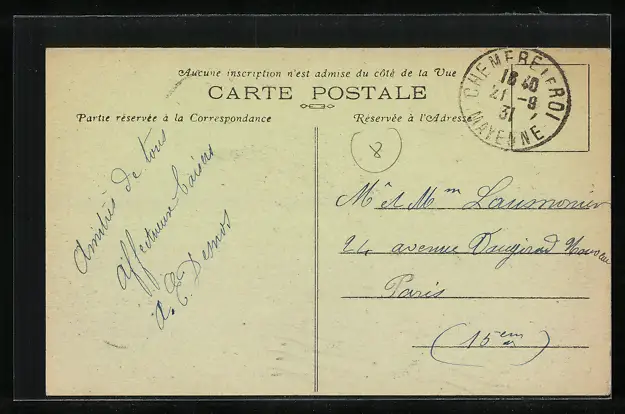 Aucune inscription n'est admise du côté de la Vue
CARTE POSTALE
Partie réservée à la Correspondance
Réservée à l'Adresse
CHEMERÉ LE ROI
18 40
21 -8
31
MAYENNE
8
Amitiés de tous
affectueux baisers
a. E. Desnos
Mr et Mme Laumonier
24 avenue Vaugirard Nouveau
Paris
(15em)